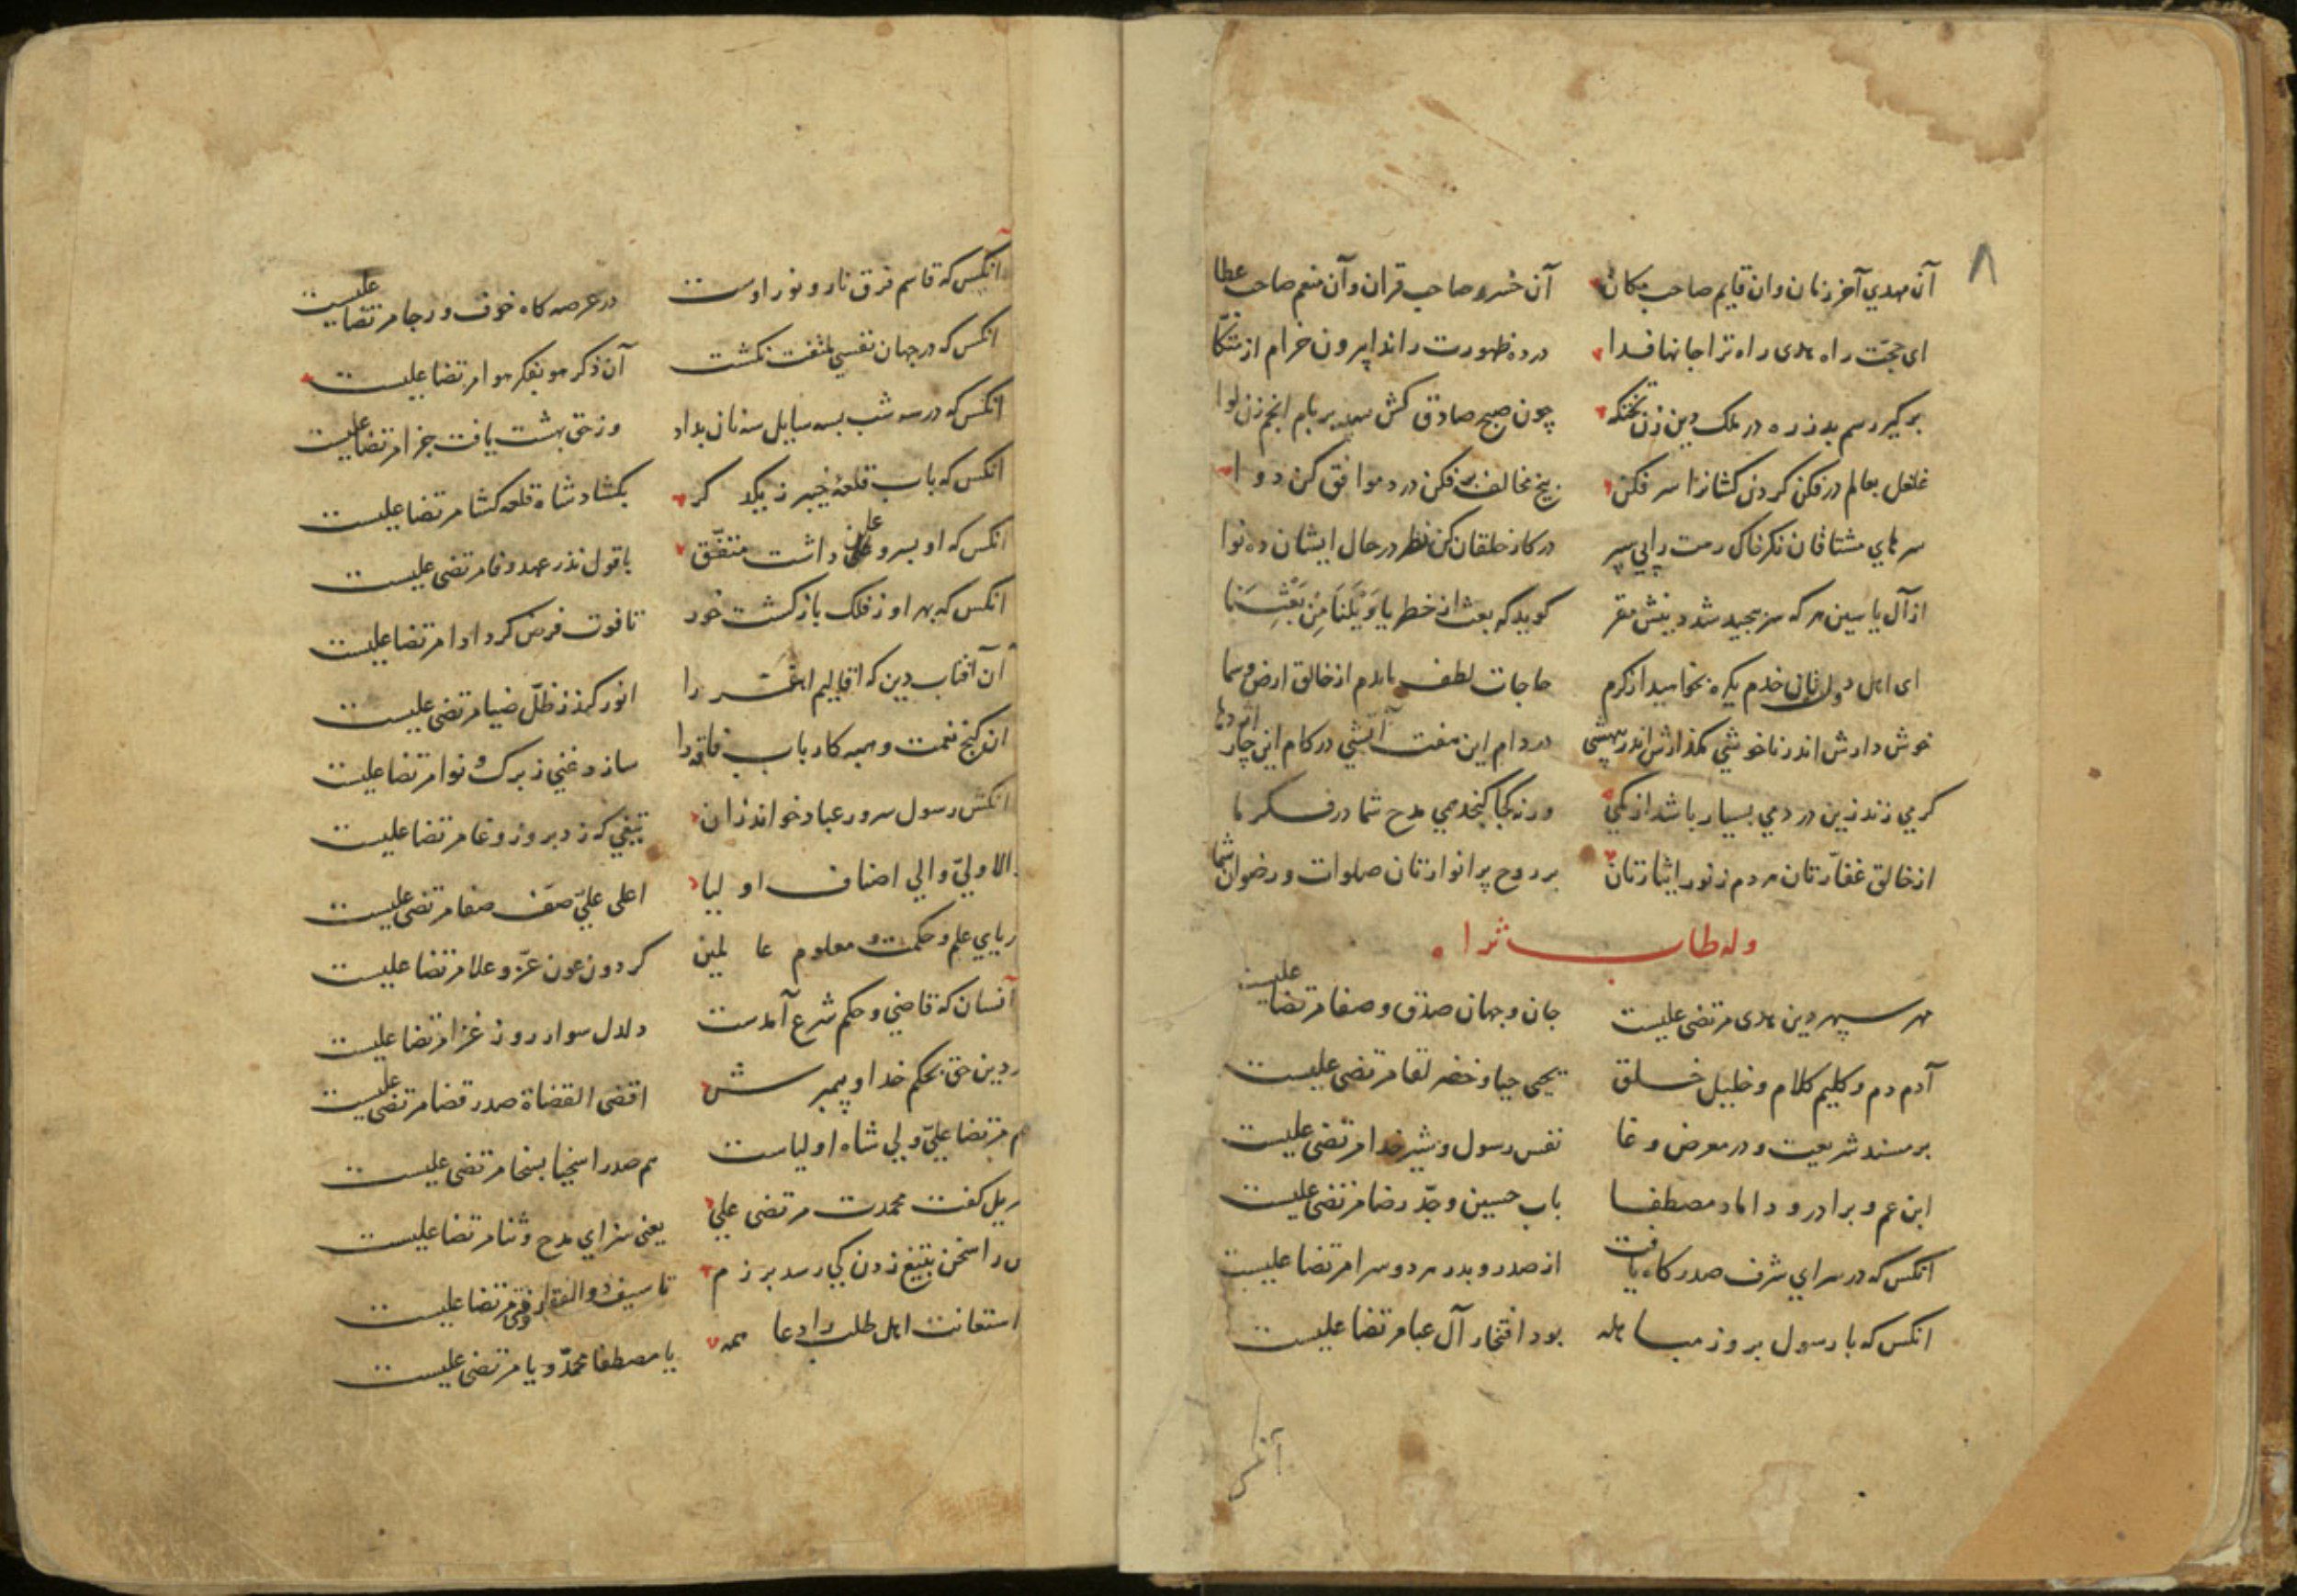 ۸
آن مهدی آخر زمان وان قایم صاحب مکان آن خسرو صاحب قران وآن منعم صاحب عطا
ای حجّت راه هدی راه ترا جانها فدا در ده ظهورت را ندا بیرون خرام از متّکا
برگیر رسم بد ز ره در ملک دین زن تختکه چون صبح صادق کش سپه بر بام انجم زن لوا
غلغل بعالم در فکن کردن کشانرا سر فکن بیخ مخالف بر فکن درد موافق کن دوا
سرهای مشتاقان نکر خاک رهت را پی سپر در کار خلقان کن نظر در حال ایشان ده نوا
از آل یاسین هر که سر پیچید شد دینش مقر کوید که بعث از خطر یا وَیْلَنَا مِنْ بَعْثِنَا
ای اهل دولتان خدم یکره بخواهید از کرم حاجات لطف با دم از خالق ارض و سما
خوش دارش اندر ناخوشی مکذارش اندر بیهشی در دام این هفت آتشی در کام این چار اژدها
کر می زند زین در دمی بسیار باشد از کمی ورنه کجا کنجد همی مدح شما در فکر ما
از خالق غفّارتان هر دم ز نور ایثارتان بر روح پر انوارتان صلوات و رضوان شما
وله طاب ثراه
مهر سپهر دین هدی مرتضی علیست جان و جهان صدق و صفا مرتضا علیست
آدم دم و کلیم کلام و خلیل خلق یحیی حیا و خضر لقا مرتضی علیست
بر مسند شریعت و در معرض وغا نفس رسول و شیر خدا مرتضی علیست
ابن عم و برادر و داماد مصطفا باب حسین و جدّ رضا مرتضی علیست
انکس که در سرای شرف صدر کاه یافت از صدر و بدر هر دو سرا مرتضا علیست
انکس که با رسول بروز مباهله بود افتخار آل عبا مرتضا علیست
آنکس
آنکس که قاسم فرق نار و نور اوست در عرصه کاه خوف و رجا مرتضا علیست
انکس که در جهان نفسی ملتفت نکشت آن ذکر هو بفکر هوا مرتضا علیست
انکس که در سه شب بسه سایل سه نان بداد وز حق بهشت یافت جزا مرتضا علیست
انکس که باب قلعهٔ خیبر ز یکد کر بکشاد شاه قلعه کشا مرتضا علیست
انکس که او بسر و علن داشت متفّق با قول نذر عهد وفا مرتضی علیست
انکس که بهر او ز فلک بازکشت خود تا فوت فرض کرد ادا مرتضا علیست
آن آفتاب دین که اقالیم را انور کند ز ظلّ ضیا مرتضی علیست
ان کنج نعمت و همه کار باب فاقه را سازد غنی ز برک و نوا مرتضا علیست
انکش رسول سرور عباد خواند زان تیغی که زد بروز وغا مرتضا علیست
والا ولیّ والی اصناف اولیا اعلی علیّ صفّ صفا مرتضی علیست
دریای علم و حکمت و معلوم عالمین کردون عون عزّ و علا مرتضا علیست
آنسان که قاضی و حکم شرع آمدست دلدل سوار روز غزا مرتضا علیست
در دین حق بحکم خدا و پیمبرش اقضی القضاة صدر قضا مرتضی علیست
هم مرتضا علیّ ولی شاه اولیاست هم صدر اسخیا بسخا مرتضی علیست
ریل کفت محمدت مرتضی علی یعنی سزای مدح و ثنا مرتضا علیست
را سخن بتیغ زدن کی رسد برزم تا سیف ذوالفقار مرتضا علیست
استعانت اهل طلب را دعا همه یا مصطفا محمّد و یا مرتضی علیست